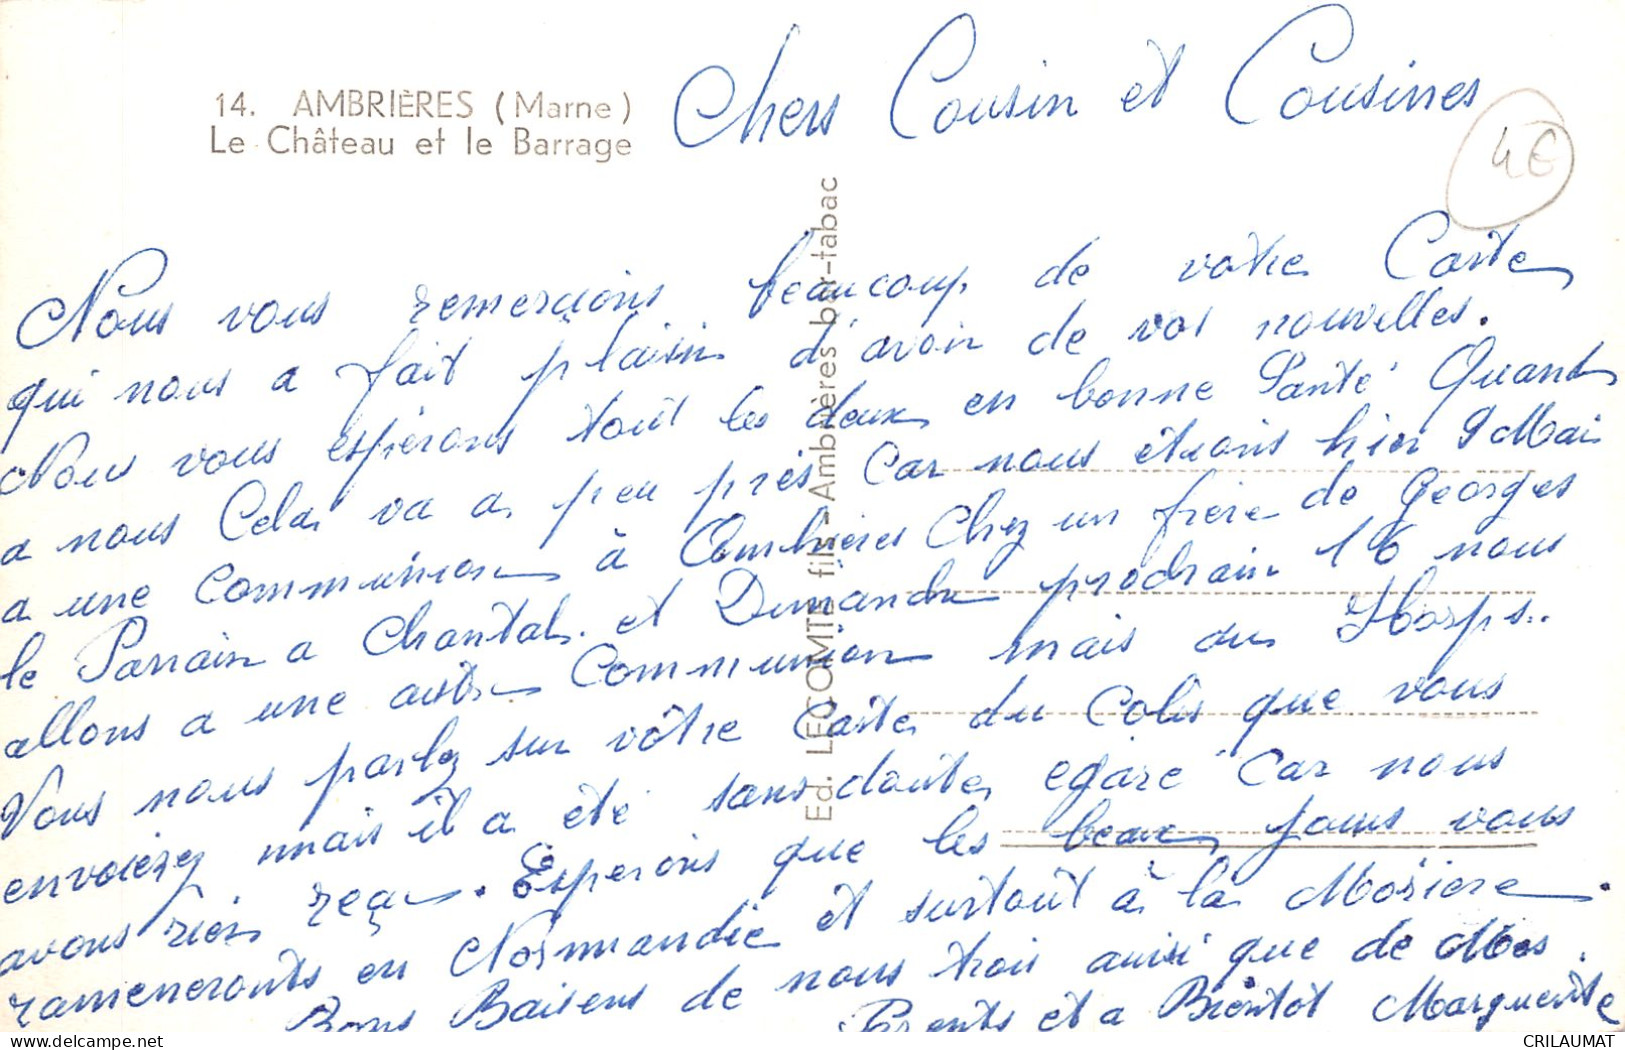 14. AMBRIÈRES (Marne)
Le Château et le Barrage
Chers Cousin et Cousines
4€
Nous vous remercions beaucoup de votre Carte
qui nous a fait plaisir d'avoir de vos nouvelles.
Nous vous espérons tout les deux en bonne Santé Quand
a nous Cela va a peu près Car nous étions hier 9 Mai
a une Communion à Ambrieres Chez un frère de Georges
le Parrain a Chantal. et Dimanche prochain 16 nous
allons a une autre Communion mais au Horps..
Vous nous parlez sur vôtre Carte du Colis que vous
envoiez mais il a été sans doute égaré Car nous
avons rien reçu. Esperons que les beaux jours vous
rameneronts en Normandie et surtout à la Moriere.
Bons Baisers de nous trois ainsi que de Mes
Parents et a Bientot Marguerite
Ed. LECOMTE fils - Ambrières bar-tabac
CRILAUMAT